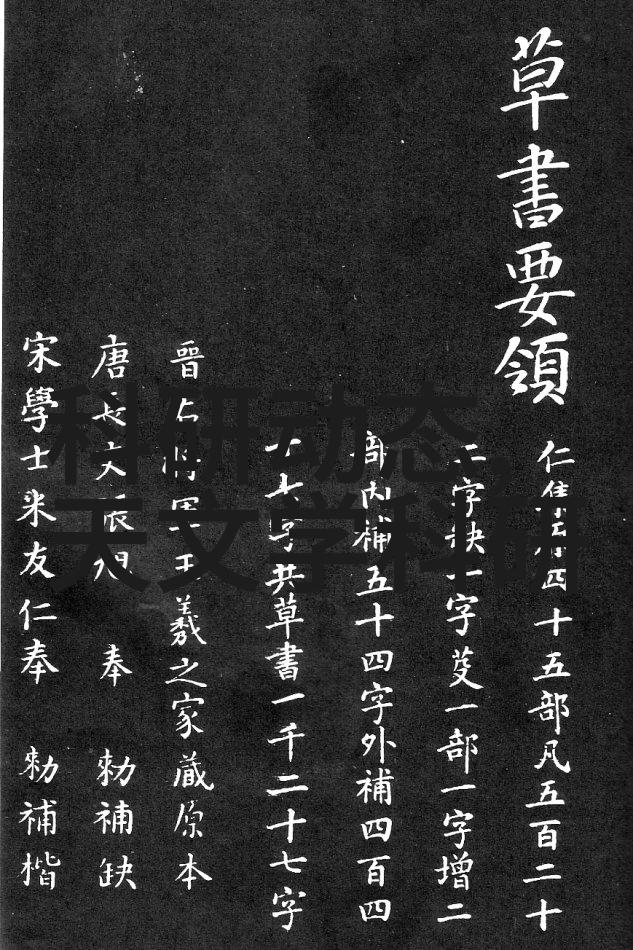 草書要領
仁集四十五部凡五百二十
二字缺一字芟一部一字增二
部內補五十四字外補四百四
十字共草書一千二十七字
晉右將軍王羲之家藏原本
唐長史張旭 奉 勑補缺
宋學士米友仁奉 勑補楷
科研动态,
天文学科研